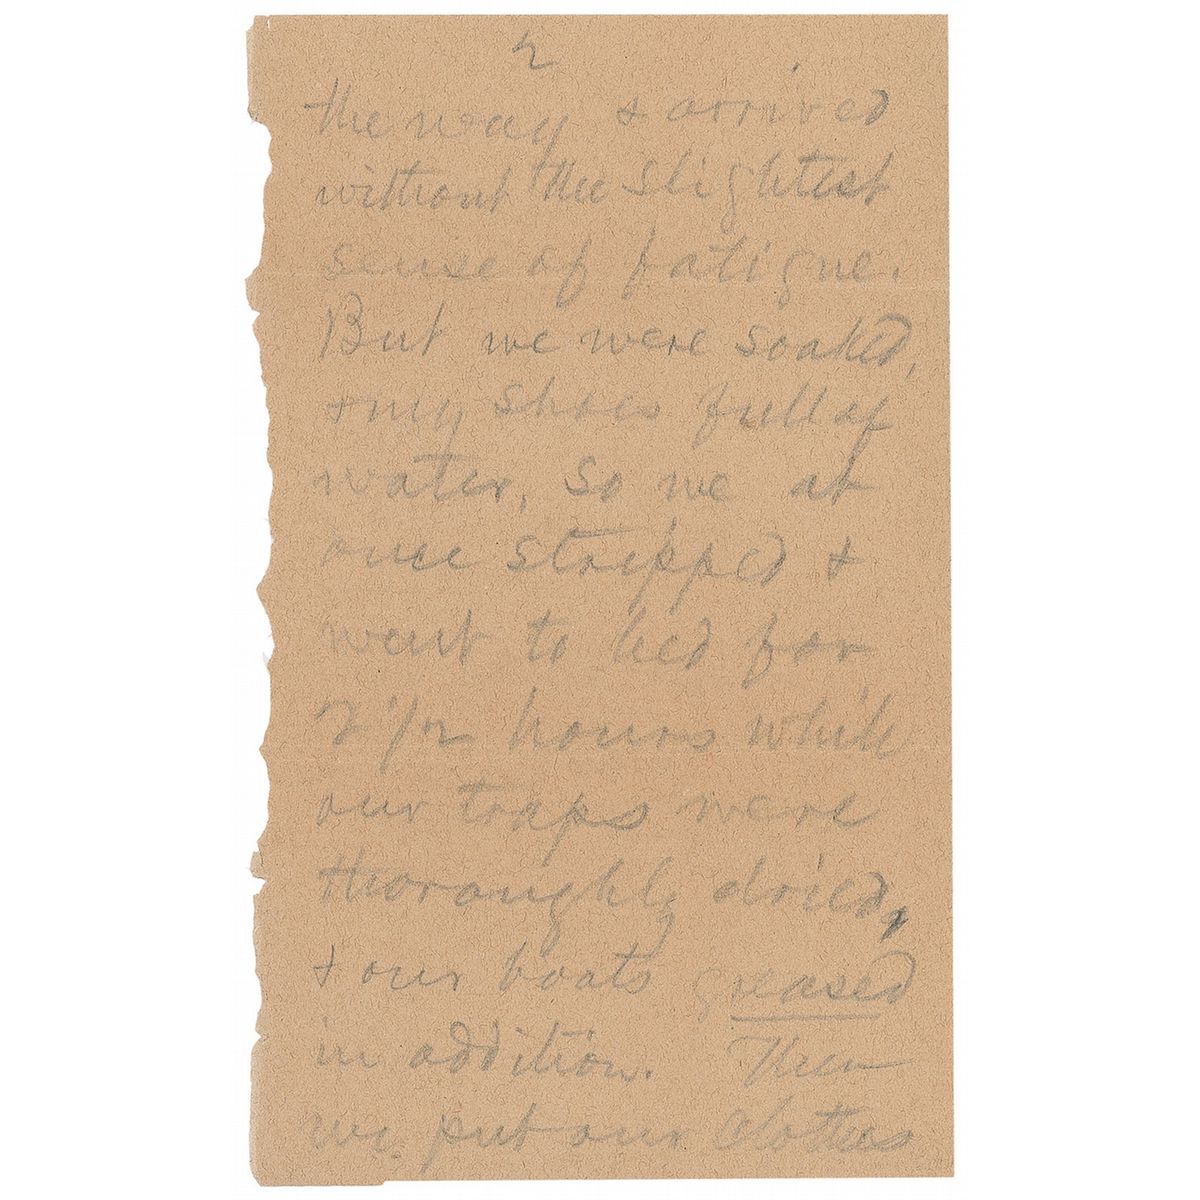 2
the way & arrived
without the slightest
sense of fatigue.
But we were soaked,
& my shoes full of
water, so we at
once stripped &
went to bed for
2 1/2 hours while
our traps were
thoroughly dried,
& our boots greased
in addition. Then
we put our clothes